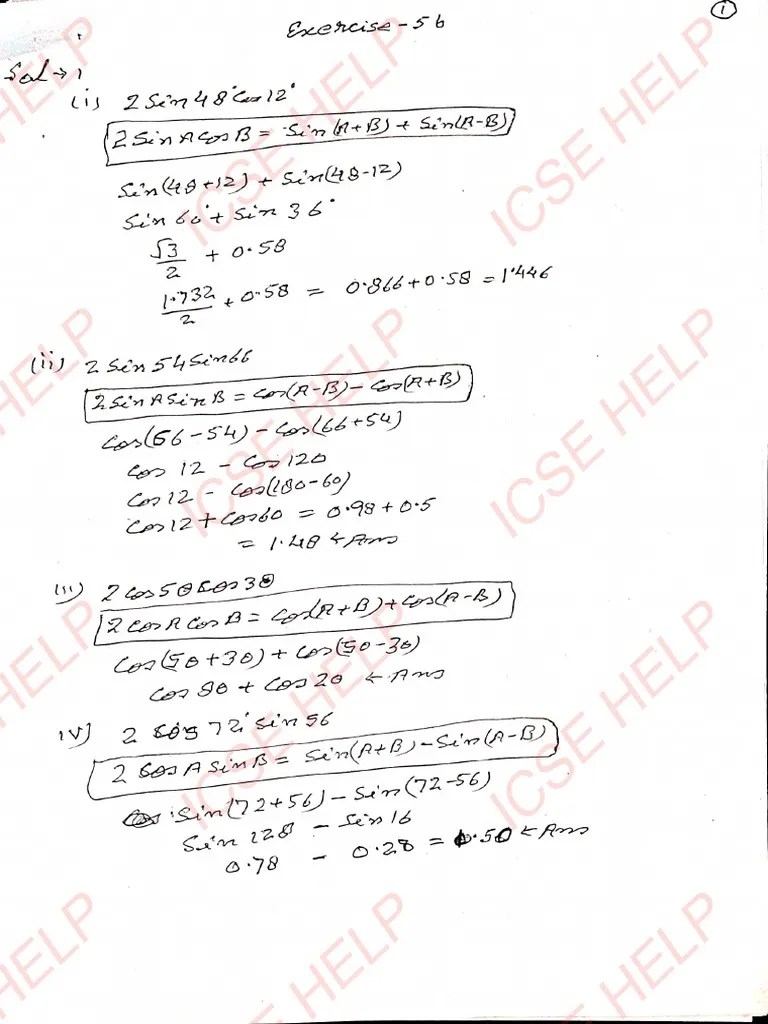 1
Exercise-5b
Sol → 1
(i) 2 Sin 48° Cos 12°
2 Sin A Cos B = Sin (A+B) + Sin(A-B)
Sin(48+12) + Sin(48-12)
Sin 60° + Sin 36°
√3/2 + 0.58
1.732/2 + 0.58 = 0.866 + 0.58 = 1.446
(ii) 2 Sin 54 Sin 66
2 Sin A Sin B = Cos(A-B) - Cos(A+B)
Cos(66-54) - Cos(66+54)
Cos 12 - Cos 120
Cos 12 - Cos(180-60)
Cos 12 + Cos 60 = 0.98 + 0.5
= 1.48 ← Ans
(iii) 2 Cos 5θ Cos 3θ
2 Cos A Cos B = Cos(A+B) + Cos(A-B)
Cos(5θ+3θ) + Cos(5θ-3θ)
Cos 8θ + Cos 2θ ← Ans
iv) 2 Cos 72° Sin 56
2 Cos A Sin B = Sin(A+B) - Sin(A-B)
Sin(72+56) - Sin(72-56)
Sin 128 - Sin 16
0.78 - 0.28 = 0.50 ← Ans
ICSE HELP
ICSE HELP
ICSE HELP
ICSE HELP
ICSE HELP
ICSE HELP
ICSE HELP
ICSE HELP
ICSE HELP
ICSE HELP
ICSE HELP
ICSE HELP